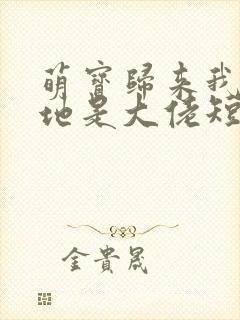 萌寶歸来我
地是大佬短
金貴晟